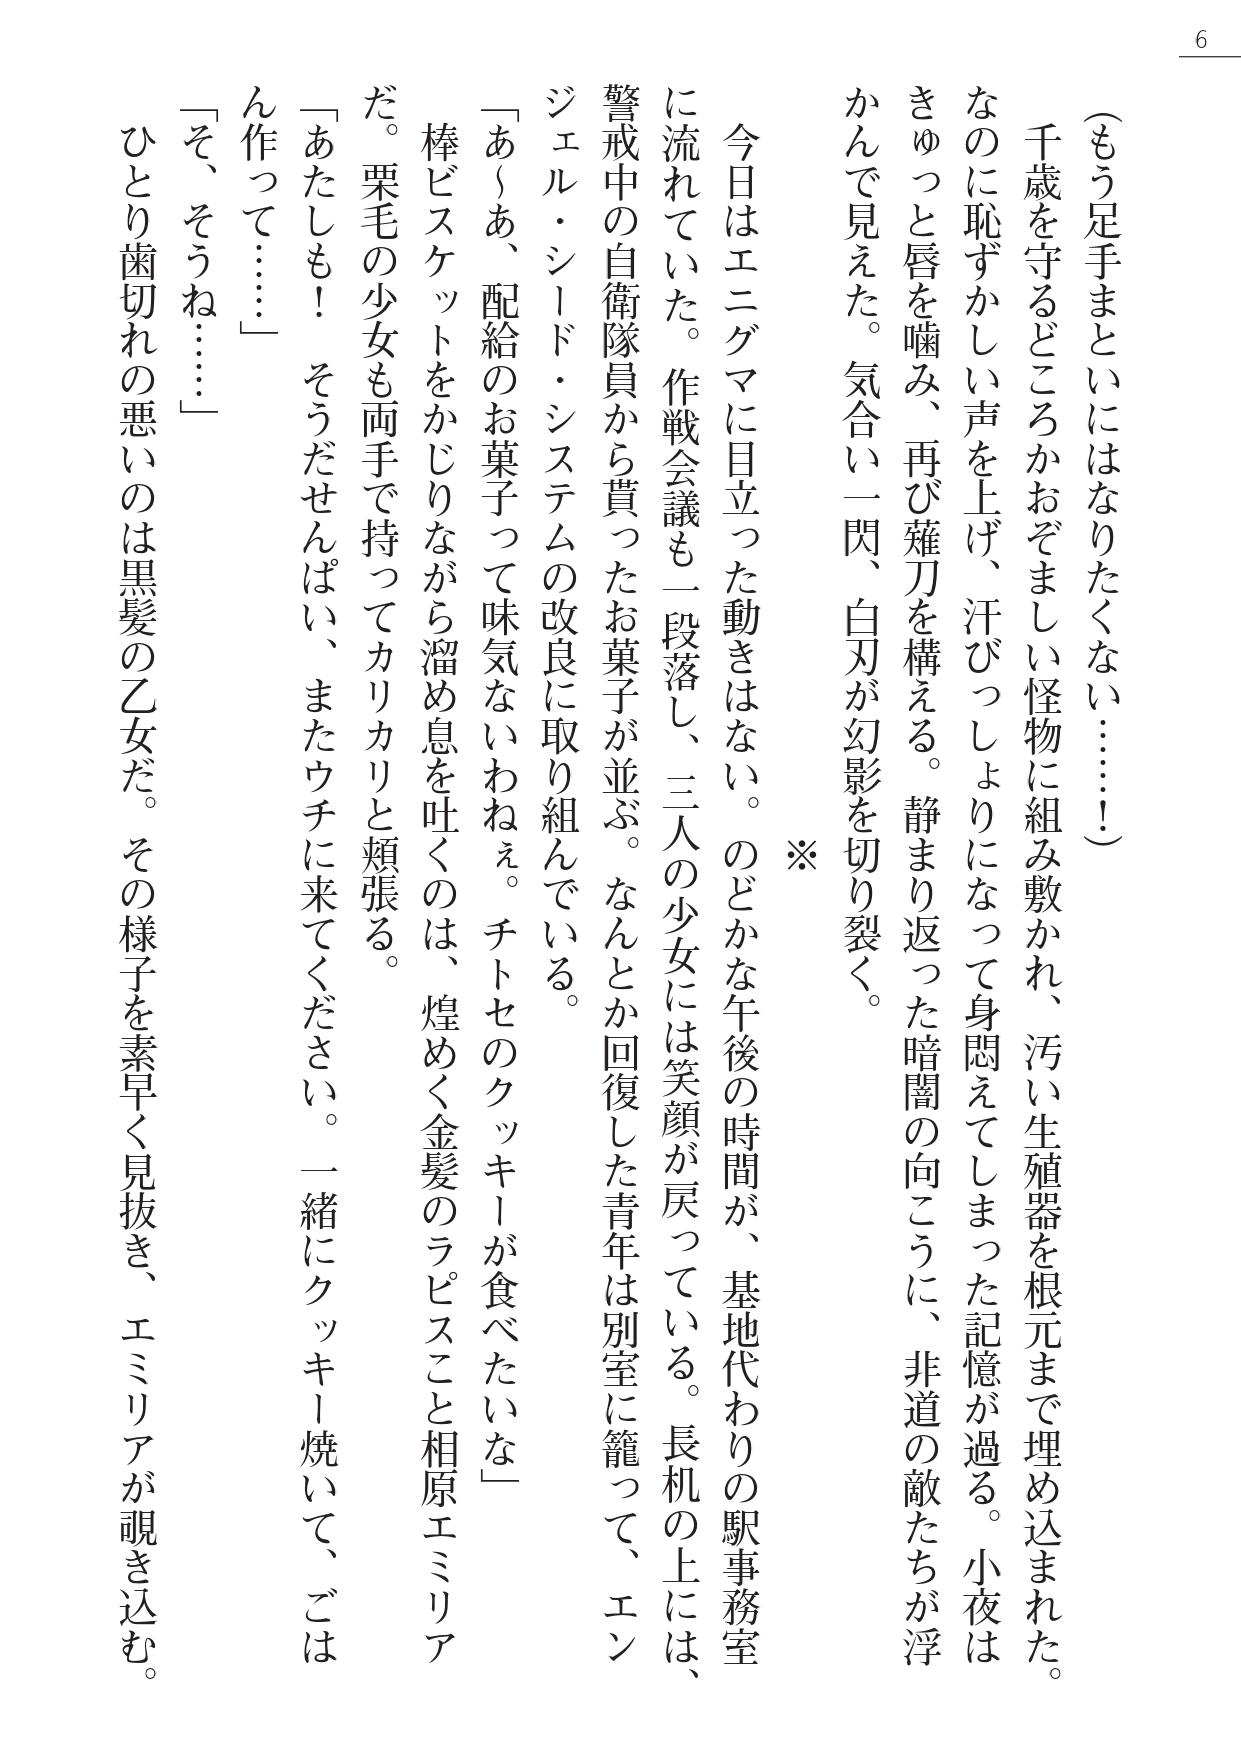 6
(もう足手まといにはなりたくない……！)
　千歳を守るどころかおぞましい怪物に組み敷かれ、汚い生殖器を根元まで埋め込まれた。
なのに恥ずかしい声を上げ、汗びっしょりになって身悶えてしまった記憶が過る。小夜は
きゅっと唇を噛み、再び薙刀を構える。静まり返った暗闇の向こうに、非道の敵たちが浮
かんで見えた。気合い一閃、白刃が幻影を切り裂く。
※
　今日はエニグマに目立った動きはない。のどかな午後の時間が、基地代わりの駅事務室
に流れていた。作戦会議も一段落し、三人の少女には笑顔が戻っている。長机の上には、
警戒中の自衛隊員から貰ったお菓子が並ぶ。なんとか回復した青年は別室に籠って、エン
ジェル・シード・システムの改良に取り組んでいる。
「あ～あ、配給のお菓子って味気ないわねぇ。チトセのクッキーが食べたいな」
　棒ビスケットをかじりながら溜め息を吐くのは、煌めく金髪のラピスこと相原エミリア
だ。栗毛の少女も両手で持ってカリカリと頬張る。
「あたしも！　そうだせんぱい、またウチに来てください。一緒にクッキー焼いて、ごは
ん作って……」
「そ、そうね……」
　ひとり歯切れの悪いのは黒髪の乙女だ。その様子を素早く見抜き、エミリアが覗き込む。